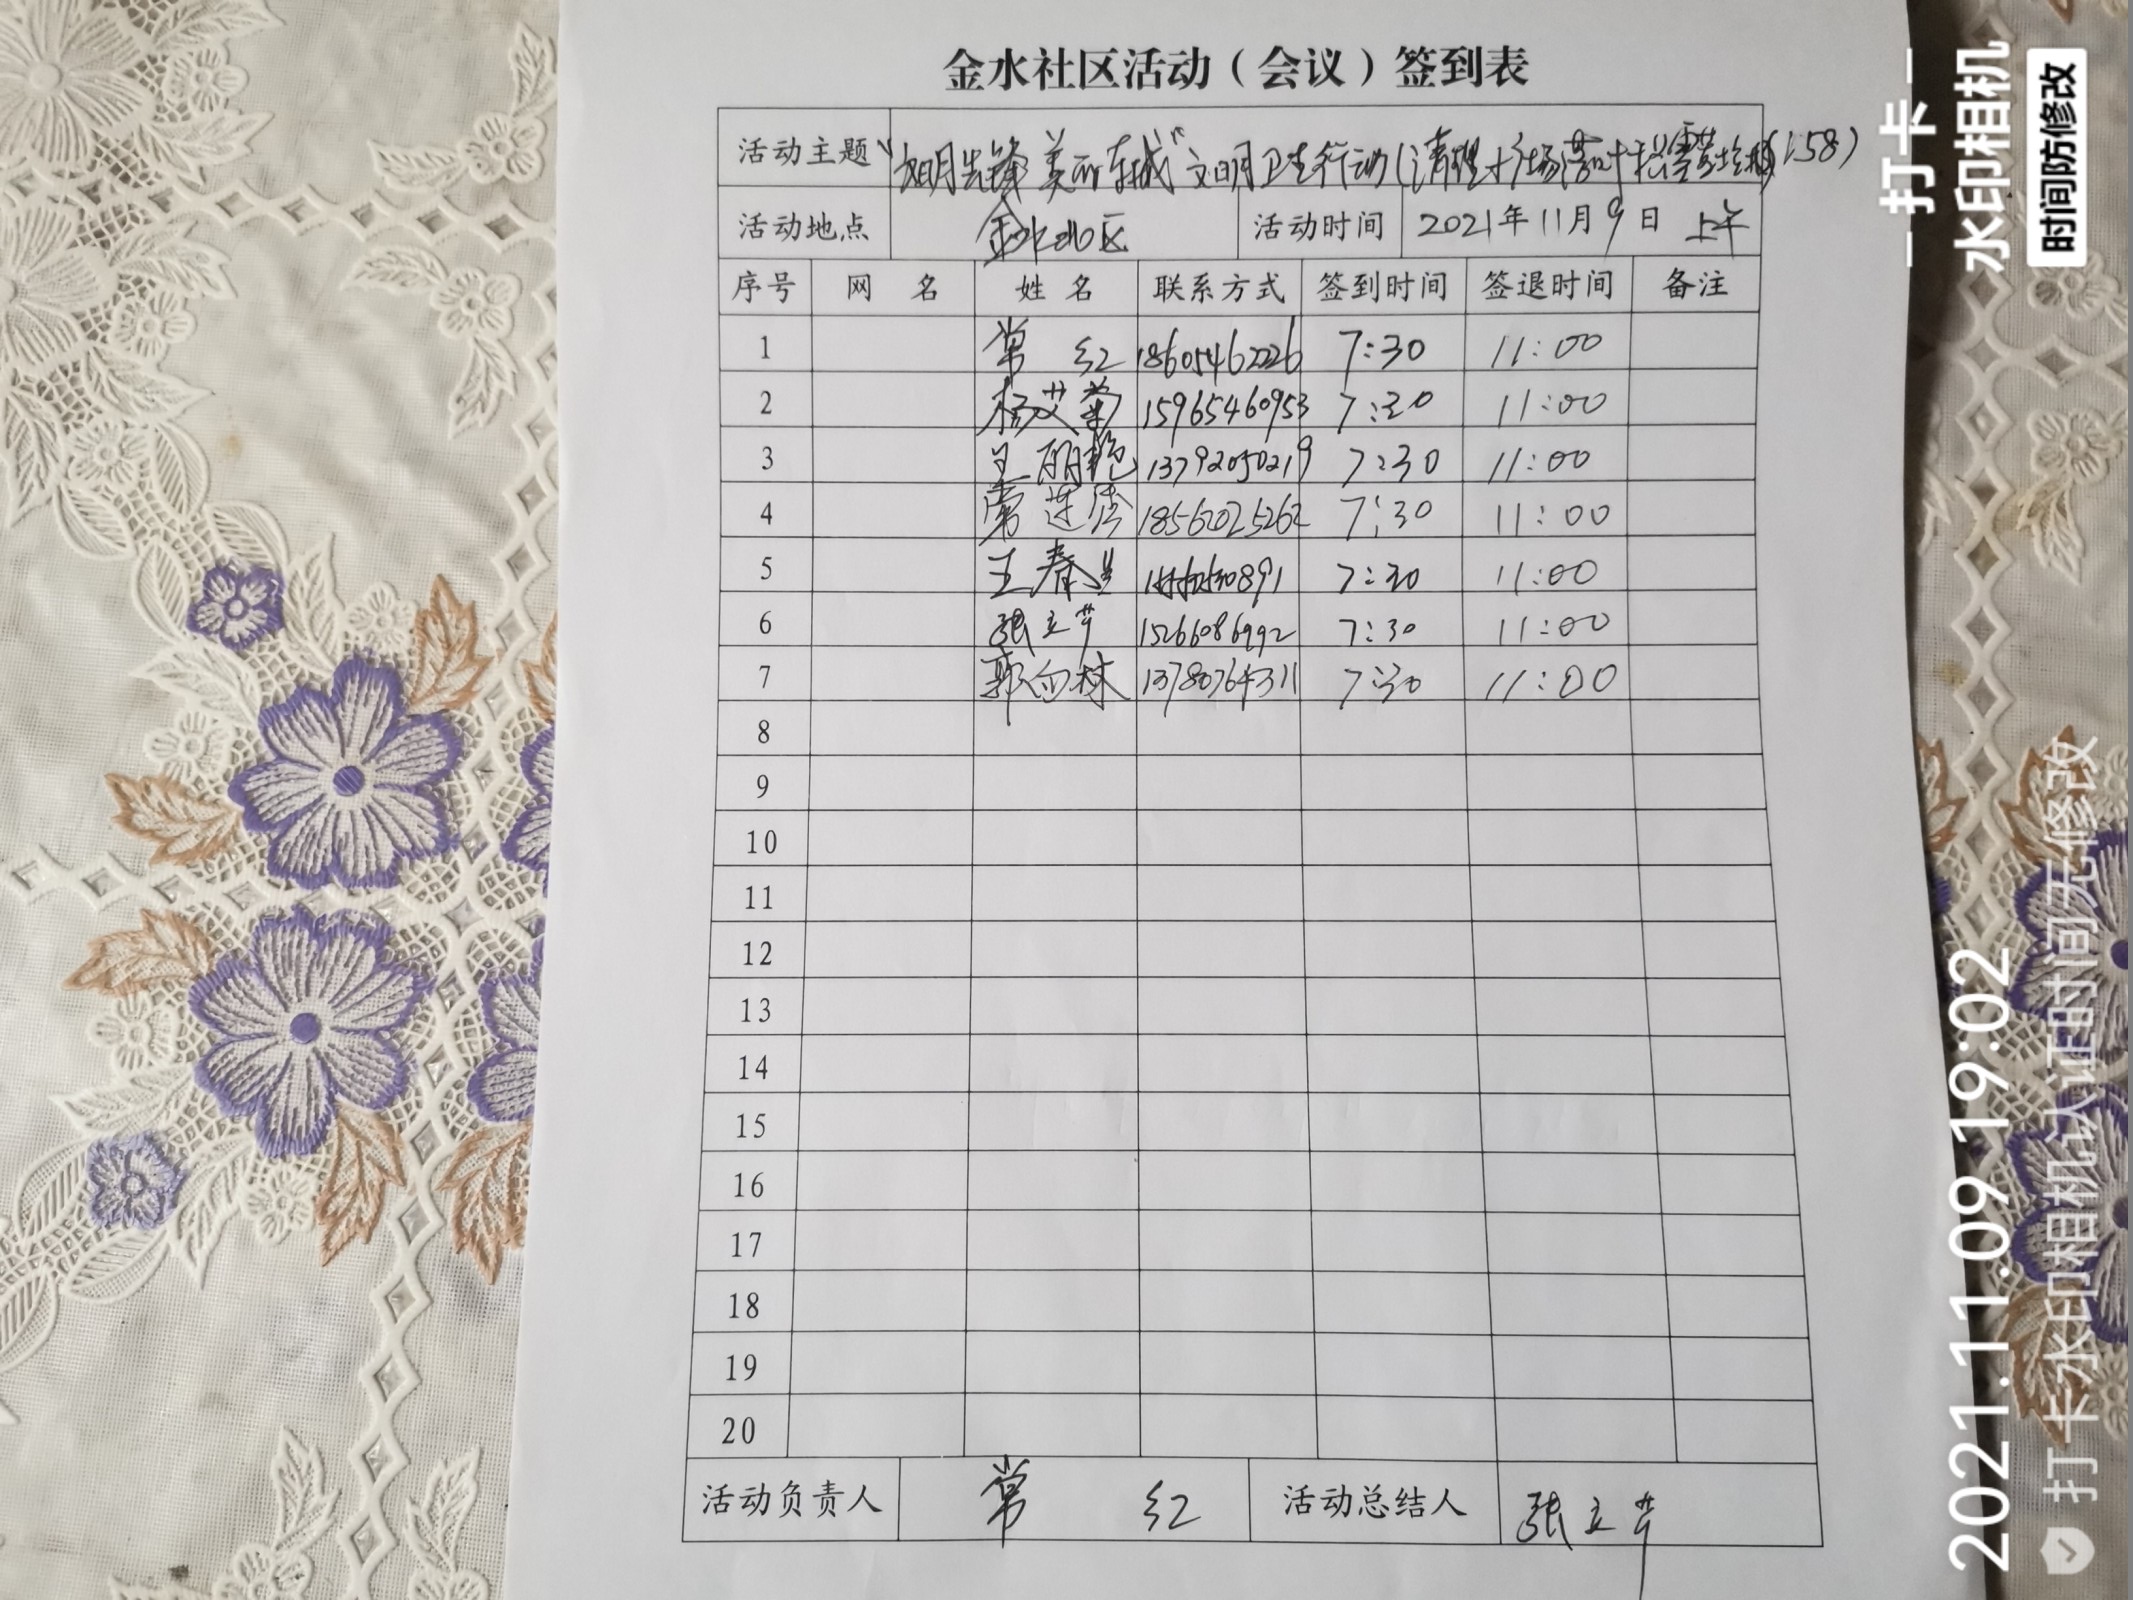 金水社区活动（会议）签到表
活动主题 "文明先锋 美丽东城"文明卫生行动(清理广场落叶 (158)
活动地点 金水社区 活动时间 2021年11月9日 上午
序号 网 名 姓 名 联系方式 签到时间 签退时间 备注
1 常 红 18605462226 7:30 11:00
2 杨艾菊 15965460953 7:30 11:00
3 王丽艳 13792050219 7:30 11:00
4 常 18562025262 7:30 11:00
5 王春兰 7:30 11:00
6 张立芹 15266086992 7:30 11:00
7 郭向林 13780764311 7:30 11:00
8
9
10
11
12
13
14
15
16
17
18
19
20
活动负责人 常 红 活动总结人 张立芹
打卡
水印相机
时间防修改
2021.11.09 19:02
打卡水印相机认证的时间无修改